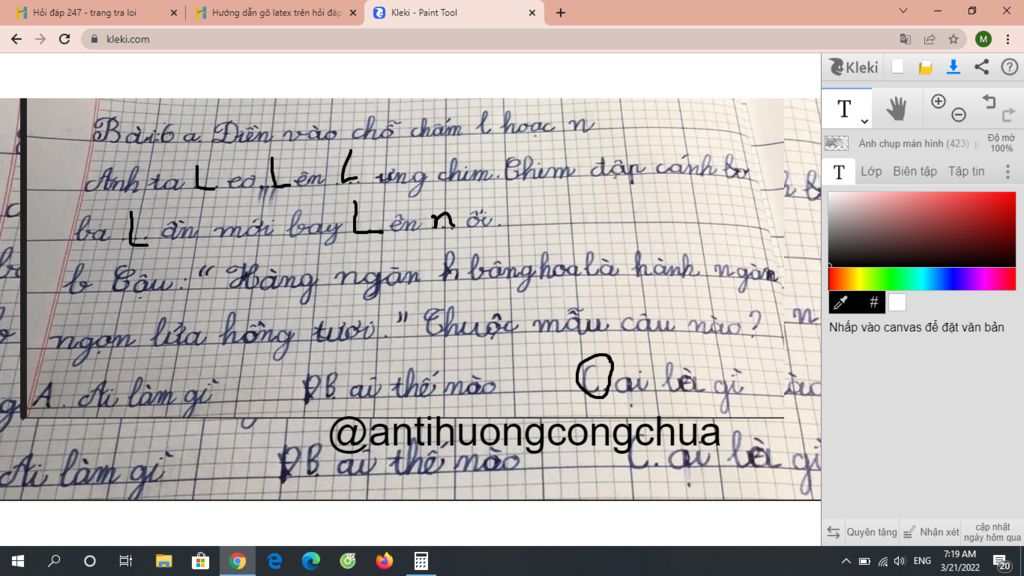 Hỏi đáp 247 - trang tra loi
Hướng dẫn gõ latex trên hỏi đáp
Kleki - Paint Tool
kleki.com
M
Kleki
Bài 6 a. Điền vào chỗ chấm l hoạc n
Anh ta L eo L ên L ưng chim. Chim đập cánh
ba L ần mới bay L ên n ổi.
b Câu: "Hàng ngàn bônghoalà hành ngàn
ngọn lửa hồng tươi." Thuộc mẫu câu nào?
A. Ai làm gì B ai thế nào C ại là gì
@antihuongcongchua
Ai làm gì B. ai thế nào C. ại là gì
T
Ảnh chụp màn hình (423)
Độ mờ
100%
T Lớp Biên tập Tập tin
#
Nhấp vào canvas để đặt văn bản
Quyên tặng
Nhận xét
cập nhật
ngày hôm qua
ENG
7:19 AM
3/21/2022
20